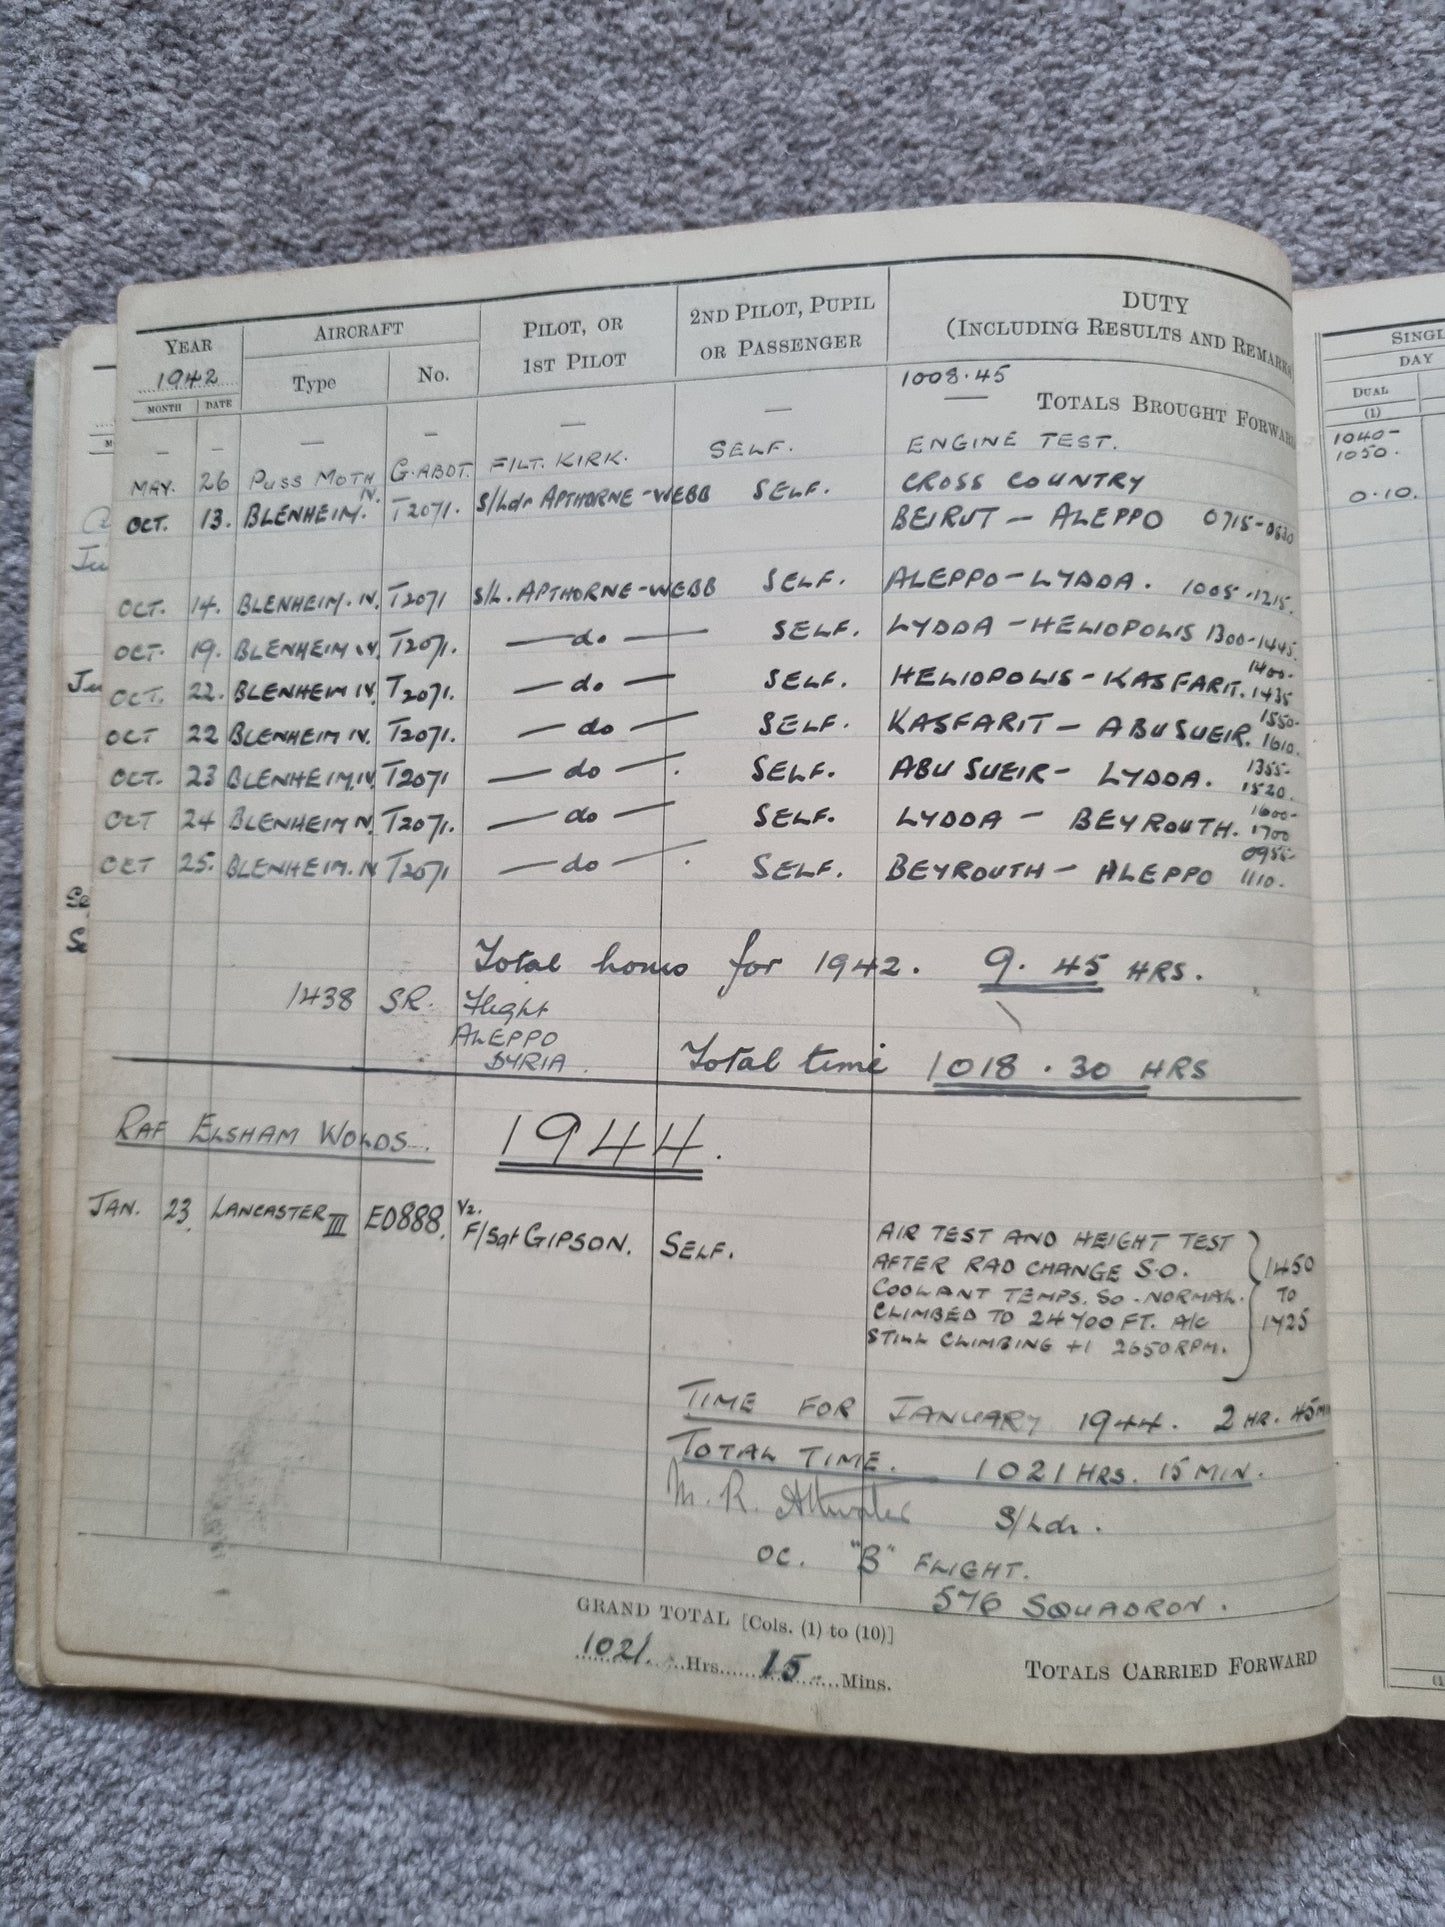 YEAR AIRCRAFT PILOT, OR 2ND PILOT, PUPIL DUTY
1942 1ST PILOT OR PASSENGER (INCLUDING RESULTS AND REMARKS)
MONTH DATE Type No.
1008.45
— — — — — — — TOTALS BROUGHT FORWARD
MAY. 26 PUSS MOTH G.ABDT. F/LT. KIRK. SELF. ENGINE TEST.
OCT. 13. BLENHEIM. IV. T2071. S/Ldr APTHORNE-WEBB SELF. CROSS COUNTRY
BEIRUT — ALEPPO 0715-0830
OCT. 14. BLENHEIM. IV. T2071 S/L. APTHORNE-WEBB SELF. ALEPPO-LYDDA. 1005-1215.
OCT. 19. BLENHEIM IV. T2071. — do — SELF. LYDDA-HELIOPOLIS 1300-1445.
OCT. 22. BLENHEIM IV. T2071. — do — SELF. HELIOPOLIS-KASFARIT. 1400-1435
OCT 22 BLENHEIM IV. T2071. — do — SELF. KASFARIT — ABU SUEIR. 1550-1610.
OCT. 23 BLENHEIM.IV. T2071 — do — . SELF. ABU SUEIR- LYDDA. 1355-1520.
OCT 24 BLENHEIM IV. T2071. — do — SELF. LYDDA — BEYROUTH. 1600-1700
OCT 25. BLENHEIM. IV T2071 — do — . SELF. BEYROUTH — ALEPPO 0955-1110.
Total hours for 1942. 9. 45 HRS.
1438 SR. Flight
ALEPPO
SYRIA.
Total time 1018.30 HRS
RAF ELSHAM WOLDS. 1944.
JAN. 23 LANCASTER III ED888. V2. F/Sgt GIPSON. SELF.
AIR TEST AND HEIGHT TEST
AFTER RAD CHANGE S.O. 1450
COOLANT TEMPS. SO-NORMAL. TO
CLIMBED TO 24700 FT. A/C 1725
STILL CLIMBING +1 2650RPM.
TIME FOR JANUARY 1944. 2 HR. 45 MIN
TOTAL TIME. 1021 HRS. 15 MIN.
M. R. Attwater S/Ldr.
OC. "B" FLIGHT.
576 SQUADRON.
GRAND TOTAL [Cols. (1) to (10)]
1021 Hrs. 15 Mins.
TOTALS CARRIED FORWARD
SINGL
DAY
DUAL
(1)
1040-
1050.
0.10.